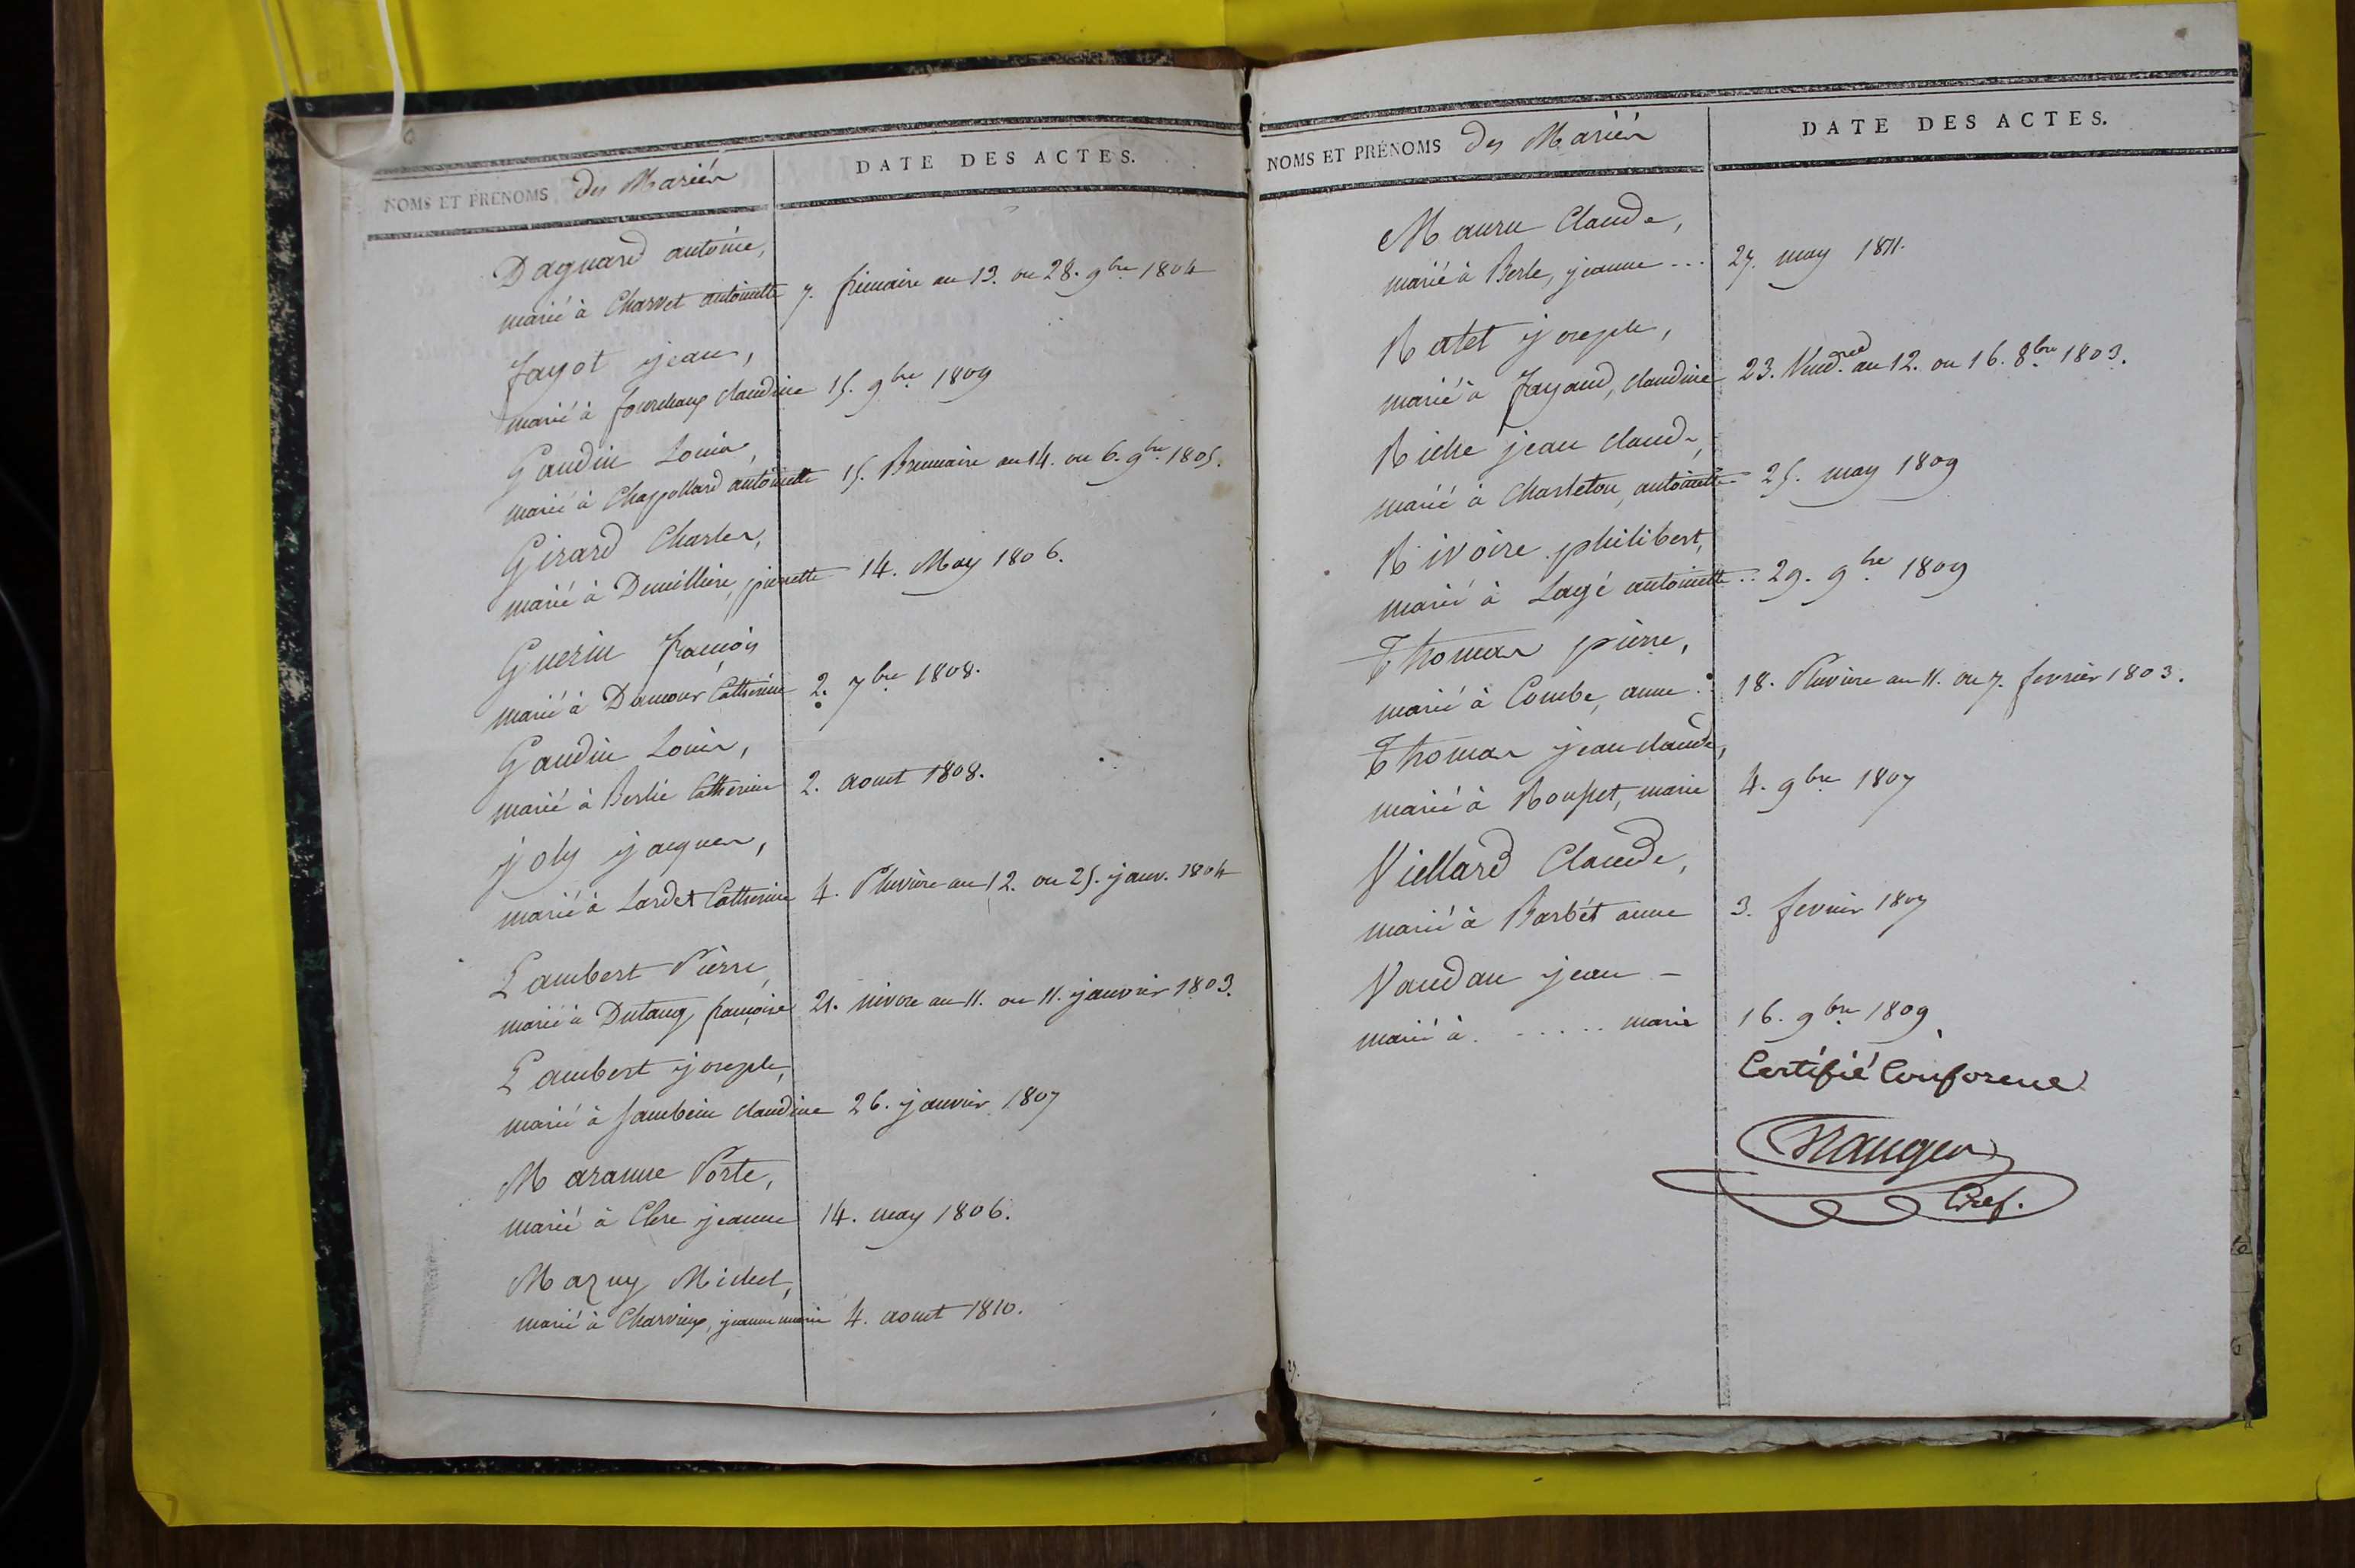 NOMS ET PRÉNOMS des Mariés
DATE DES ACTES.
Daguard antoine,
marié à Charvet antoinette 7. frimaire an 13. ou 28. 9bre 1804
Fayot jean,
marié à fourchaux claudine 15. 9bre 1809
Gaudin Louis,
marié à Chapollard antoinette 15. Brumaire an 14. ou 6. 9bre 1805.
Girard Charles,
marié à pierrette 14. May 1806.
Guerin françois
marié à Damour Catherine 2. 7bre 1808.
Gaudin Louis,
marié à Berlie Catherine 2. aout 1808.
joly jacques,
marié à Lardet Catherine 4. Pluviôse an 12. ou 25. janv. 1804
Lambert Pierre,
marié à Dutang françoise 21. nivose an 11. ou 11. janvier 1803.
Lambert joseph,
marié à Jambein claudine 26. janvier 1807
Maranne Porte,
marié à Clere jeanne 14. may 1806.
Mazuy Michel,
marié à Charvieux, jeanne marie 4. aout 1810.
NOMS ET PRÉNOMS des Mariés
DATE DES ACTES.
Mauru Claude,
marié à Berle, jeanne ... 27. may 1811.
Ratet joseph,
marié à Fayard, claudine 23. Vend.red an 12. ou 16. 8bre 1803.
Riche jean claude,
marié à Charleton, antoinette 25. may 1809
Rivoire philibert,
marié à Lagé antoinette .. 29. 9bre 1809
Thomas pierre,
marié à Combe, anne .. 18. Pluviose an 11. ou 7. fevrier 1803.
Thomas jean claude,
marié à Roupet, marie 4. 9bre 1807
Viellard Claude,
marié à Barbét anne 3. fevrier 1807
Vaudau jean –
marié à ...... marie 16. 9bre 1809
Certifié Conforme
Gref.